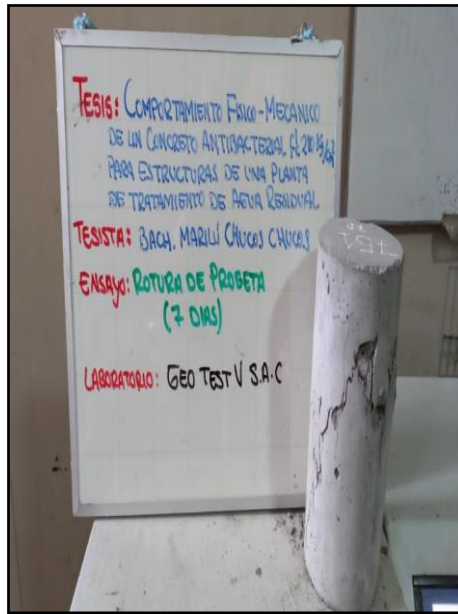 TESIS: COMPORTAMIENTO FISICO-MECANICO
DE UN CONCRETO ANTIBACTERIAL f'c 210 Kg/cm²
PARA ESTRUCTURAS DE UNA PLANTA
DE TRATAMIENTO DE AGUA RESIDUAL
TESISTA: BACH. MARILÚ CHUCOS CHUCOS
ENSAYO: ROTURA DE PROBETA
(7 DIAS)
LABORATORIO: GEO TEST V S.A.C
751